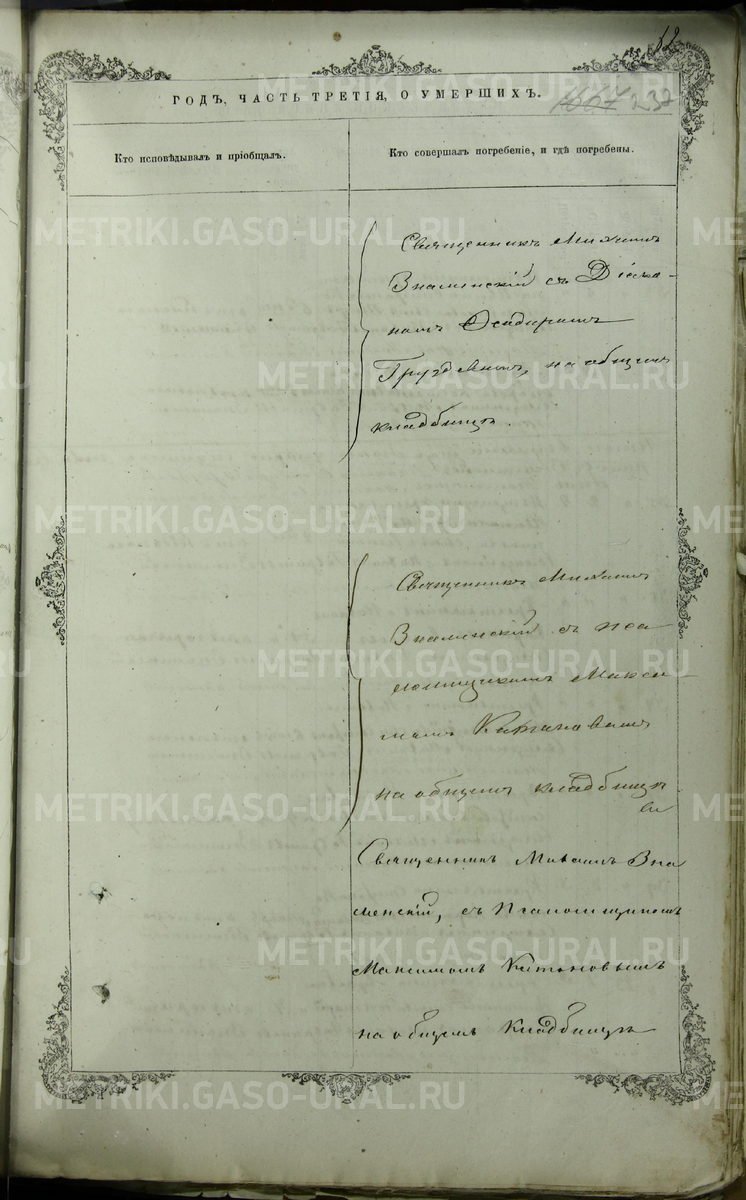 52
ГОДЪ, ЧАСТЬ ТРЕТІЯ, О УМЕРШИХЪ.
237
Кто исповѣдывалъ и пріобщалъ.
Кто совершалъ погребеніе, и гдѣ погребены.
Священникъ Михаилъ
Знаменскій съ Діако-
номъ Ѳеодоромъ
Груздевымъ, на общемъ
кладбищѣ.
Священникъ Михаилъ
Знаменскій съ пса
ломщикомъ Макси-
момъ
на общемъ кладбищѣ
Священникъ Михаилъ Зна
менскій, съ Псаломщикомъ
Максимомъ
на общемъ Кладбищѣ
METRIKI.GASO-URAL.RU